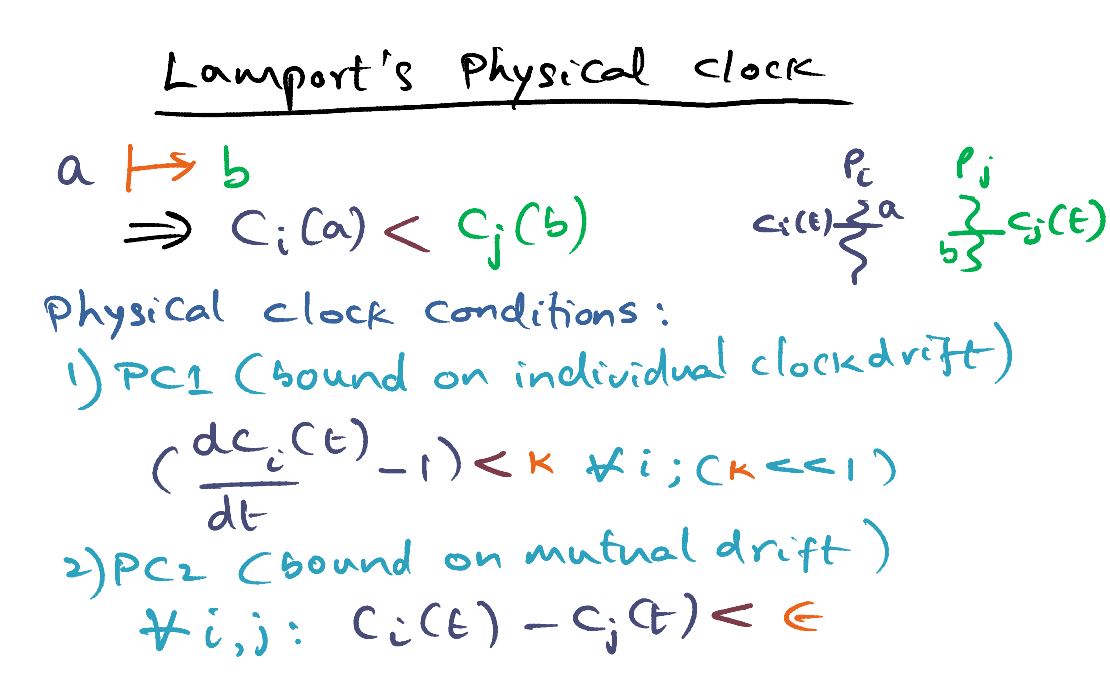 Lamport's Physical clock
a ↦ b
⇒ Ci(a) < Cj(b)
Pi Pj
Ci(t) a b Cj(t)
Physical clock conditions:
1) PC1 (bound on individual clock drift)
(dCi(t)/dt - 1) < K ∀i; (K << 1)
2) PC2 (bound on mutual drift)
∀i,j: Ci(t) - Cj(t) < ∈